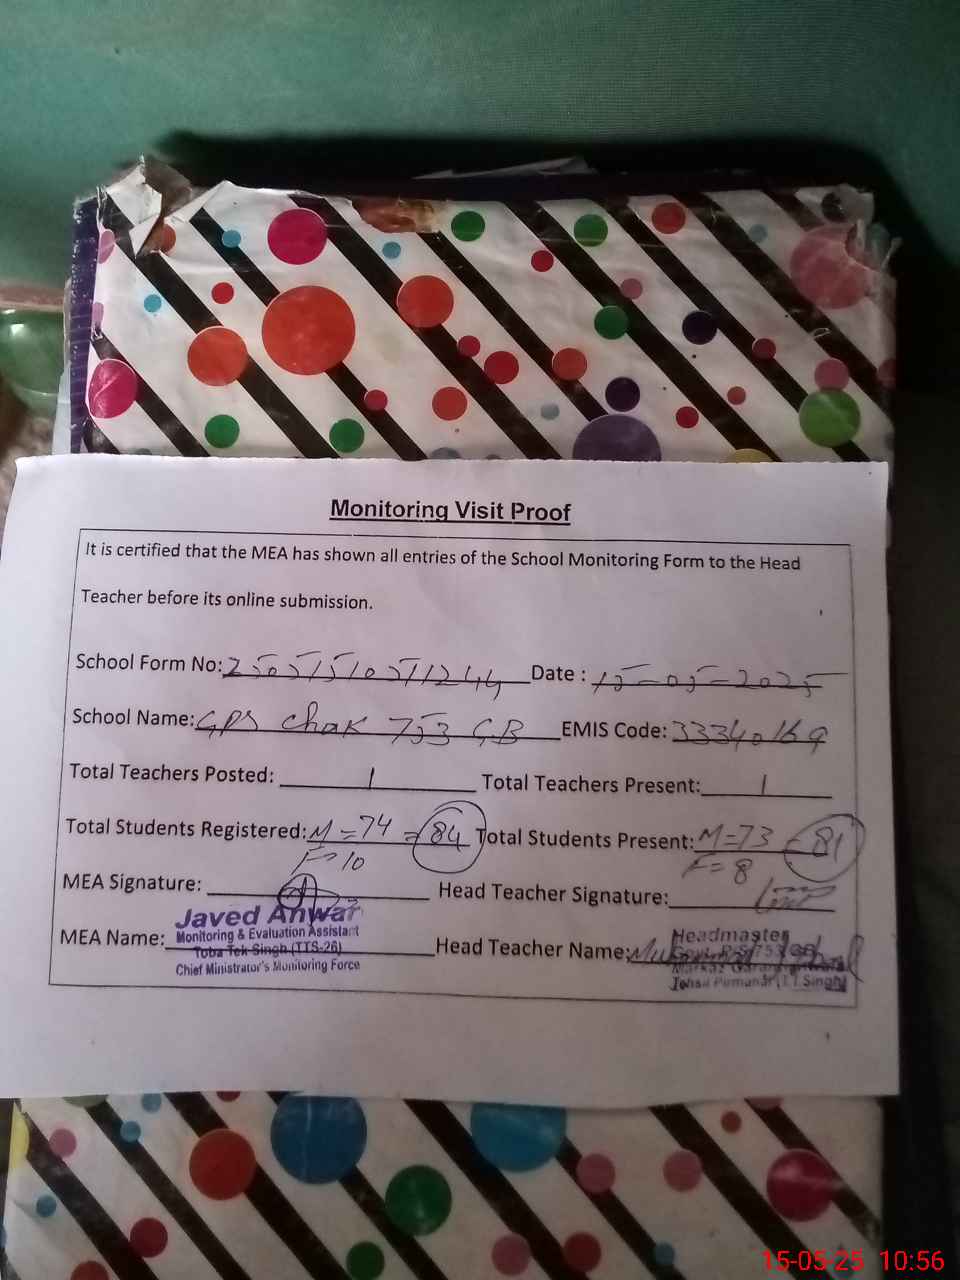 Monitoring Visit Proof
It is certified that the MEA has shown all entries of the School Monitoring Form to the Head
Teacher before its online submission.
School Form No: 25051510511244 Date : 15-05-2025
School Name: GPS Chak 753 GB EMIS Code: 33340169
Total Teachers Posted: 1 Total Teachers Present: 1
Total Students Registered: M=74 = 84 Total Students Present: M=73 = 81
F=10 F=8
MEA Signature: Head Teacher Signature:
Javed Anwar
Monitoring & Evaluation Assistant
Toba Tek Singh (TTS-26)
Chief Ministrator's Monitoring Force
MEA Name: Head Teacher Name: Muhammad
Headmaster
753 GB
Markaz
(T.T.Singh)
15-05-25 10:56